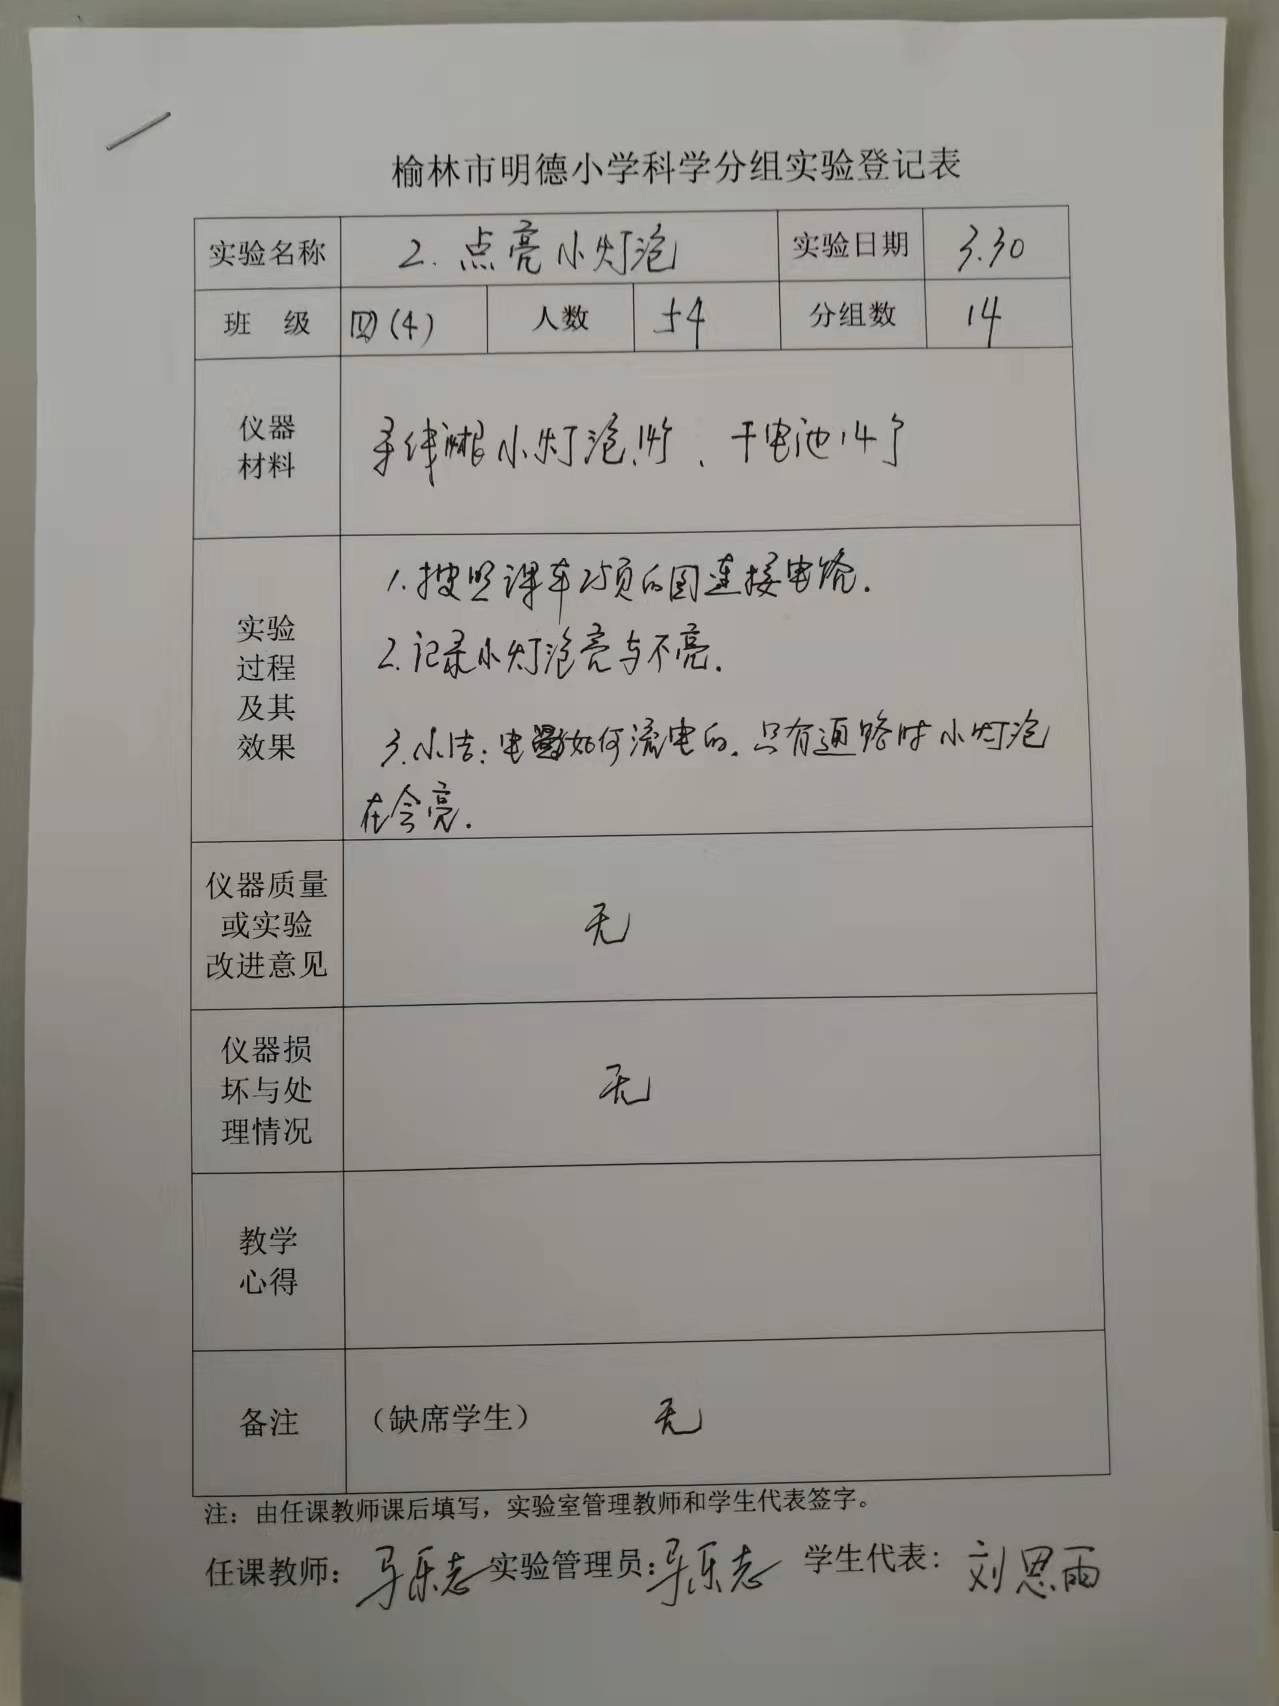 榆林市明德小学科学分组实验登记表
实验名称 2. 点亮小灯泡 实验日期 3.30
班 级 四(4) 人数 54 分组数 14
仪器
材料
导线 小灯泡 14个、干电池14个
实验
过程
及其
效果
1. 按照课本25页的图连接电路.
2. 记录小灯泡亮与不亮.
3. 小洁: 电 如何流电的. 只有通路时小灯泡
在会亮.
仪器质量
或实验
改进意见
无
仪器损
坏与处
理情况
无
教学
心得
备注 (缺席学生) 无
注：由任课教师课后填写，实验室管理教师和学生代表签字。
任课教师：马乐志 实验管理员：马乐志 学生代表：刘思雨